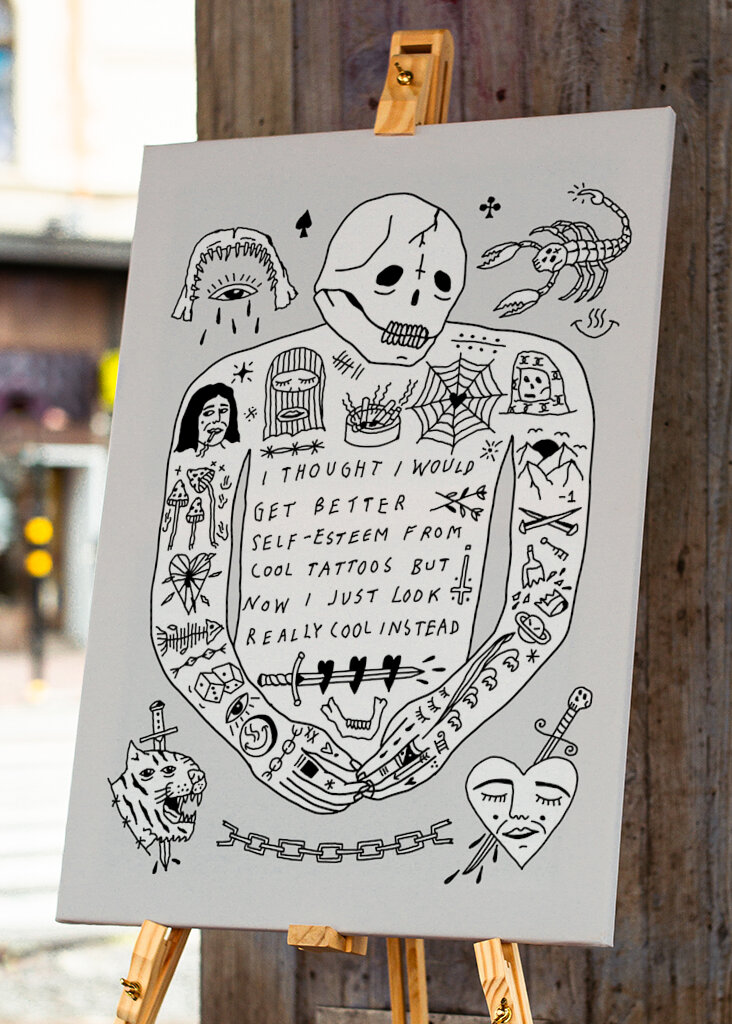 I THOUGHT I WOULD
GET BETTER
SELF-ESTEEM FROM
COOL TATTOOS BUT
NOW I JUST LOOK
REALLY COOL INSTEAD
-1
XX